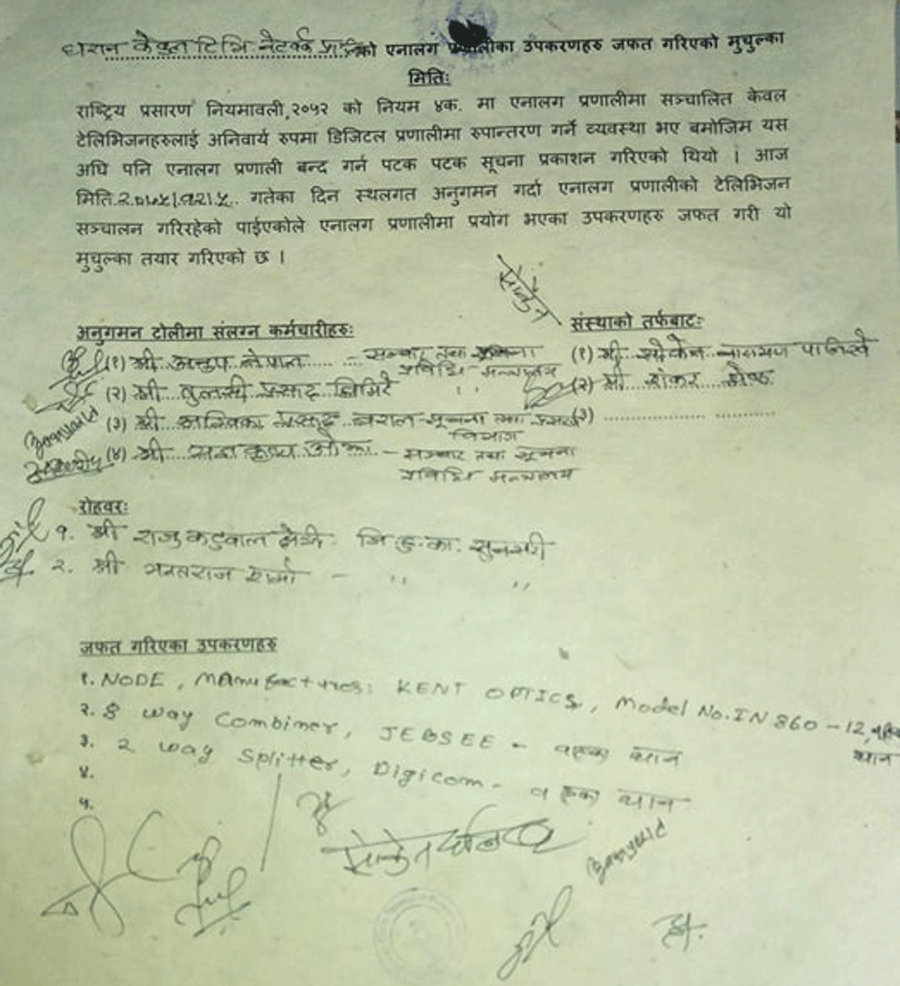 धरान केवल टिभि नेटवर्क प्रा.लि.को एनालग प्रणालीका उपकरणहरु जफत गरिएको मुचुल्का
मितिः
राष्ट्रिय प्रसारण नियमावली,२०५२ को नियम ४क. मा एनालग प्रणालीमा सञ्चालित केवल
टेलिभिजनहरुलाई अनिवार्य रुपमा डिजिटल प्रणालीमा रुपान्तरण गर्ने व्यवस्था भए बमोजिम यस
अघि पनि एनालग प्रणाली बन्द गर्न पटक पटक सूचना प्रकाशन गरिएको थियो । आज
मिति.२०७५।१२।५.. गतेका दिन स्थलगत अनुगमन गर्दा एनालग प्रणालीको टेलिभिजन
सञ्चालन गरिरहेको पाईएकोले एनालग प्रणालीमा प्रयोग भएका उपकरणहरु जफत गरी यो
मुचुल्का तयार गरिएको छ ।
अनुगमन टोलीमा संलग्न कर्मचारीहरुः
(१) श्री नेपाल - सञ्चार तथा सूचना
प्रविधि मन्त्रालय
(२) श्री तुलसी प्रसाद घिमिरे " "
(३) श्री अम्बिका प्रसाद बराल - सूचना तथा प्रसारण
विभाग
(४) श्री - सञ्चार तथा सूचना
प्रविधि मन्त्रालय
संस्थाको तर्फबाटः
(१) श्री नारायण
(२) श्री शंकर श्रेष्ठ
(३) ....................
रोहवरः
१. श्री राजु कटुवाल क्षेत्री जि.प्र.का. सुनसरी
२. श्री शर्मा - " "
जफत गरिएका उपकरणहरु
१. NODE, Manufactures: KENT OPTICS, Model No. IN 860-12, एक
थान
२. 8 way Combiner, JEBSEE - १ एका थान
३. 2 way Splitter, Digicom - १ एका थान
४.
५.